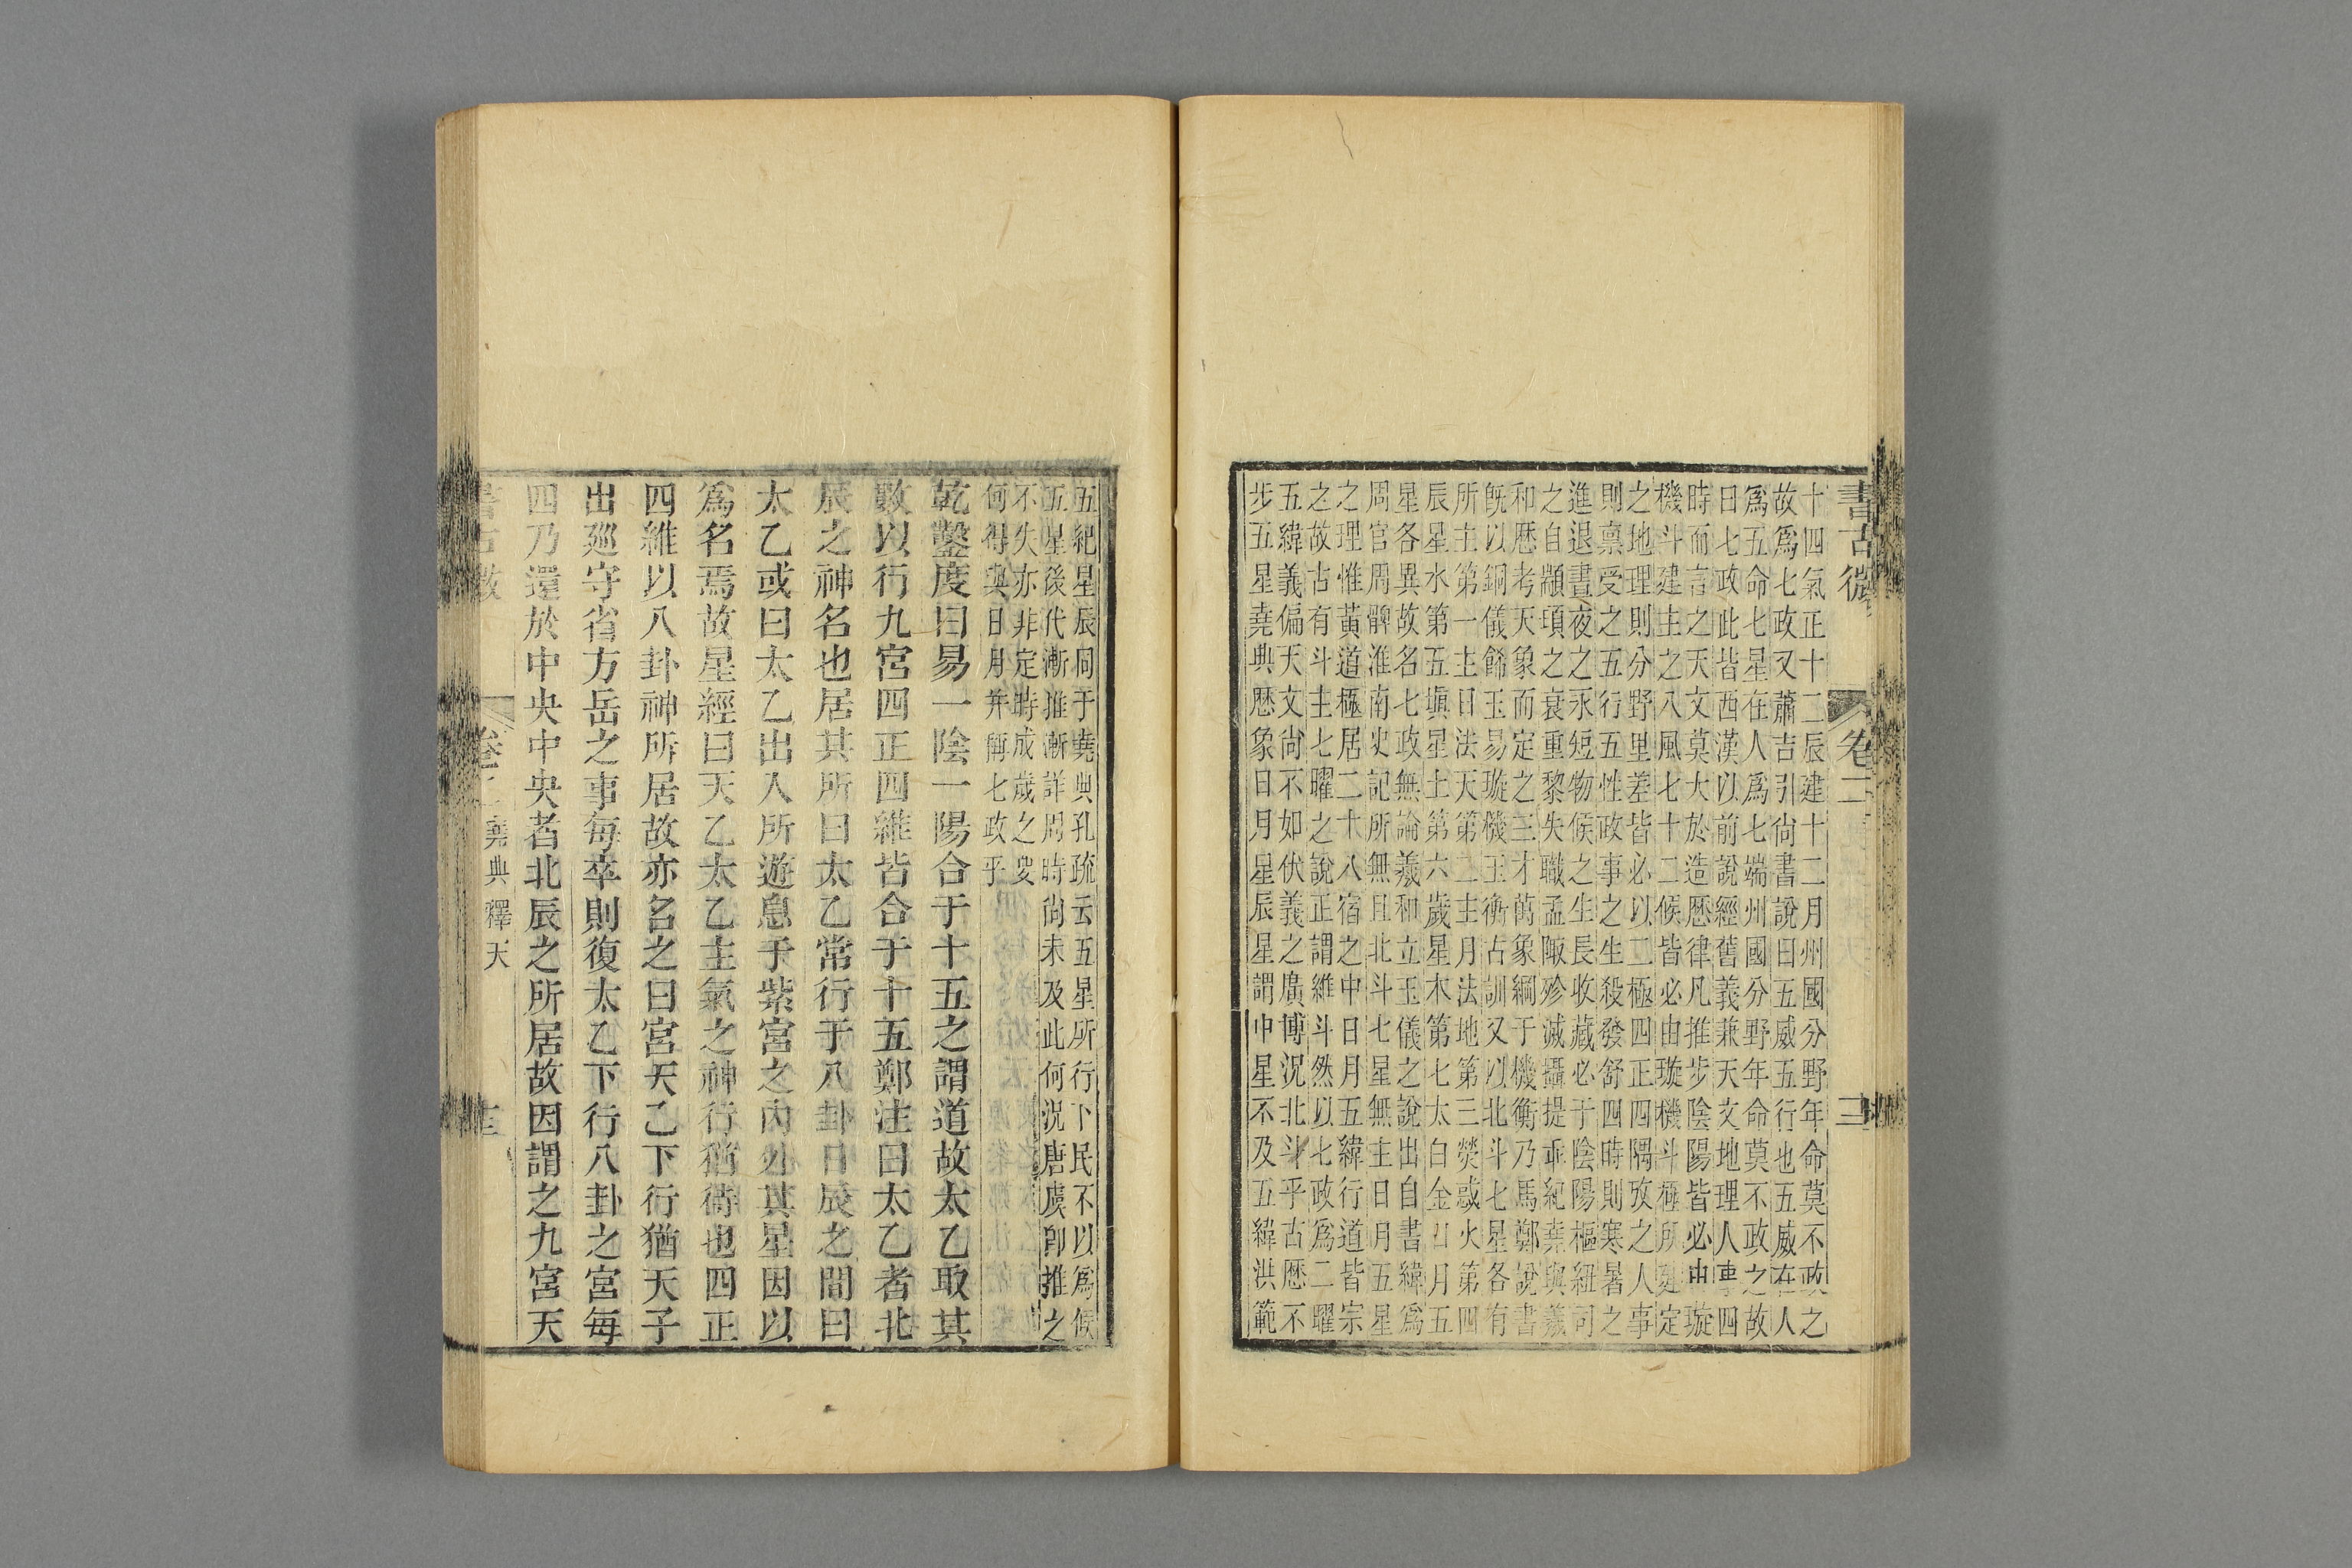 書古微
卷二
十四氣正十二辰建十二月州國分野年命莫不政之
故爲七政又蕭吉引尙書說曰五威五行也五威在人
爲五命七星在人爲七端州國分野年命莫不政之故
日七政此皆西漢以前說經舊義兼天文地理人事四
時而言之天文莫大於造歷律凡推步陰陽皆必由璇
機斗建主之八風七十二候皆必由璇機斗極所建定
之地理則分野里差皆必以二極四正四隅攷之人事
則禀受之五行五性政事之生殺發舒四時則寒暑之
進退晝夜之永短物候之生長收藏必于陰陽樞紐司
之自顓頊之衰重黎失職孟陬殄滅攝提乖紀堯與羲
和歷考天象而定之三才萬象綱于機衡乃馬鄭說書
旣以銅儀飾玉易璇機玉衡古訓又以北斗七星各有
所主第一主日法天第二主月法地第三熒惑火第四
辰星水第五塡星土第六歲星木第七太白金日月五
星各異故名七政無論羲和立玉儀之說出自書緯爲
周官周髀淮南史記所無且北斗七星無主日月五星
之理惟黃道極居二十八宿之中日月五緯行道皆宗
之故古有斗主七曜之說正謂維斗然以七政爲二曜
五緯義偏天文尙不如伏羲之廣博況北斗乎古歷不
步五星堯典歷象日月星辰星謂中星不及五緯洪範
五紀星辰同于堯典孔疏云五星所行下民不以爲候
五星後代漸推漸詳周時尙未及此何況唐虞卽推之
不失亦非定時成歲之要
何得與日月并稱七政乎
乾鑿度曰易一陰一陽合于十五之謂道故太乙取其
數以行九宮四正四維皆合于十五鄭注曰太乙者北
辰之神名也居其所曰太乙常行于八卦日辰之間曰
太乙或曰太乙出入所遊息于紫宮之內外其星因以
爲名焉故星經曰天乙太乙主氣之神行猶待也四正
四維以八卦神所居故亦名之曰宮天乙下行猶天子
出廵守省方岳之事每卒則復太乙下行八卦之宮每
四乃還於中央中央者北辰之所居故因謂之九宮天
卷二 堯典釋天